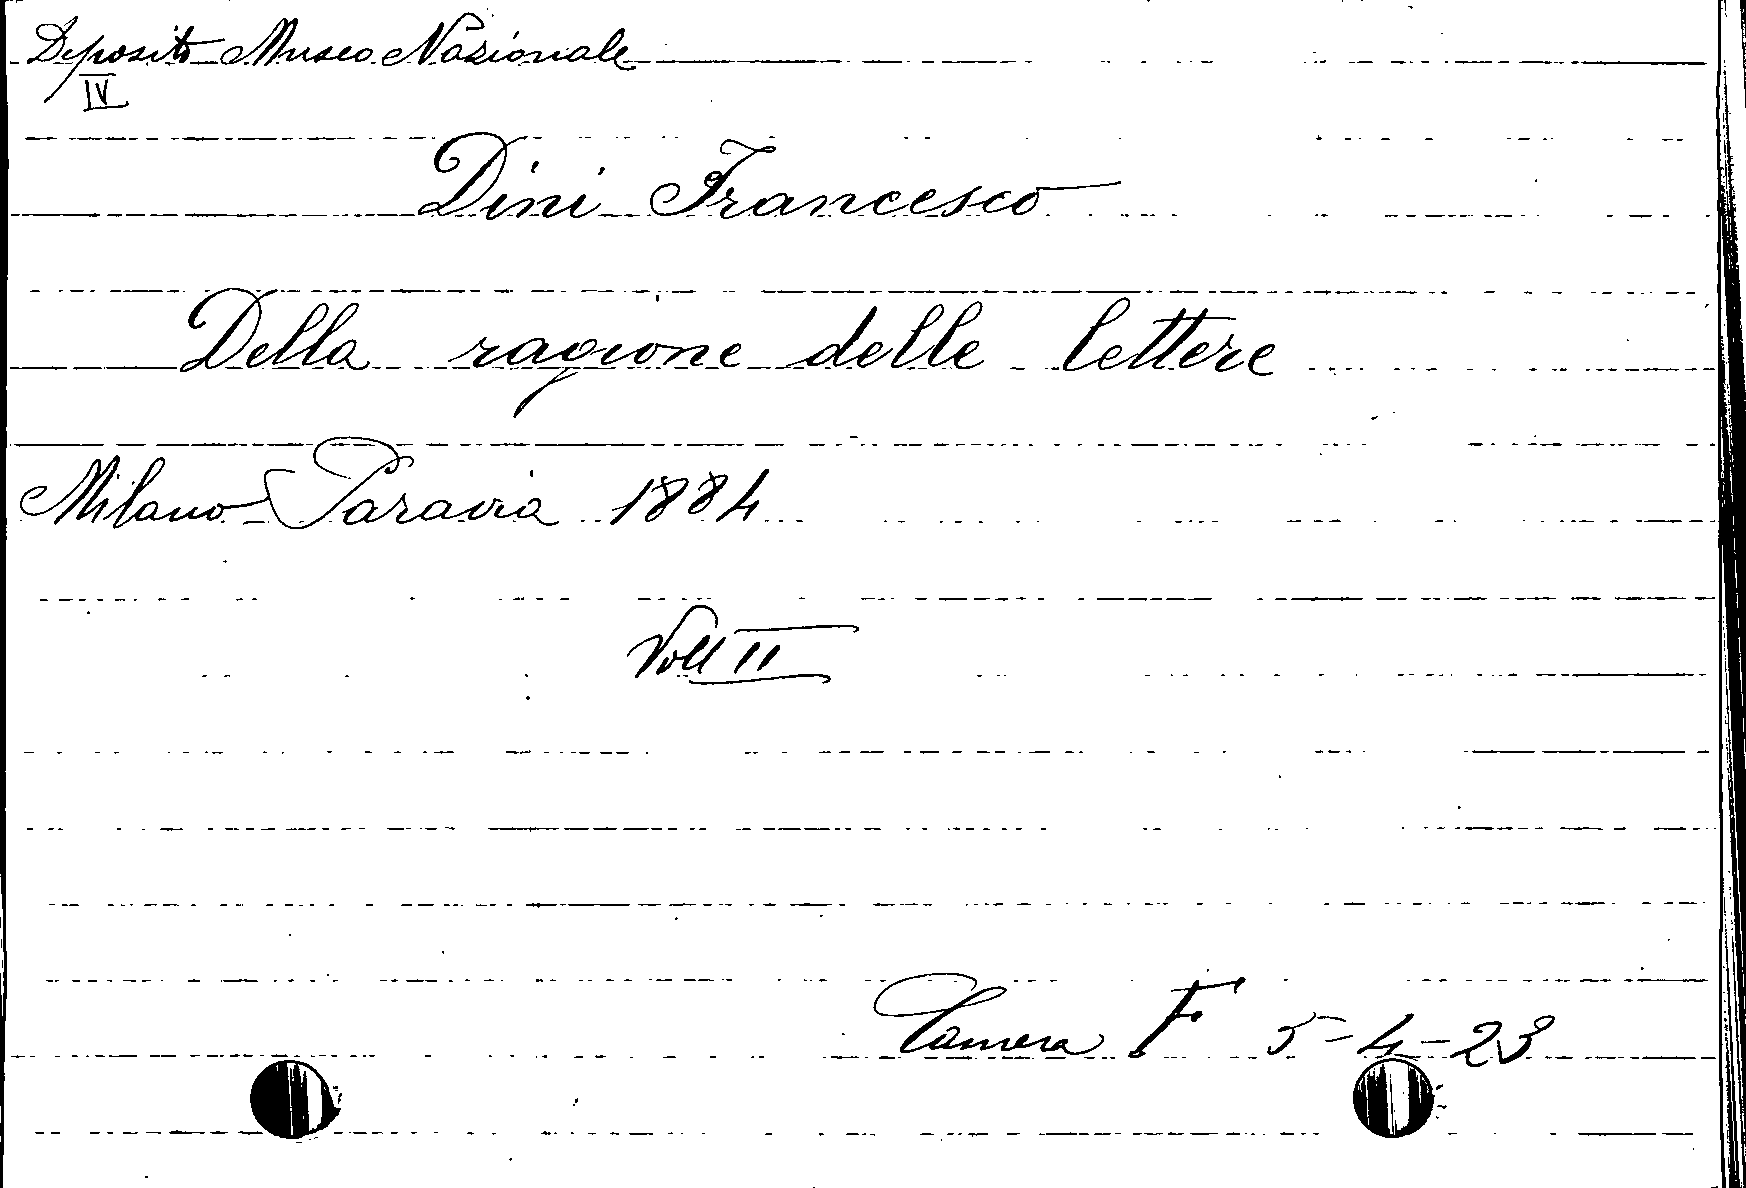 Deposito Museo Nazionale
IV
Dini Francesco
Della ragione delle lettere
Milano Paravia 1884
Voll II
Camera F 5-4-23